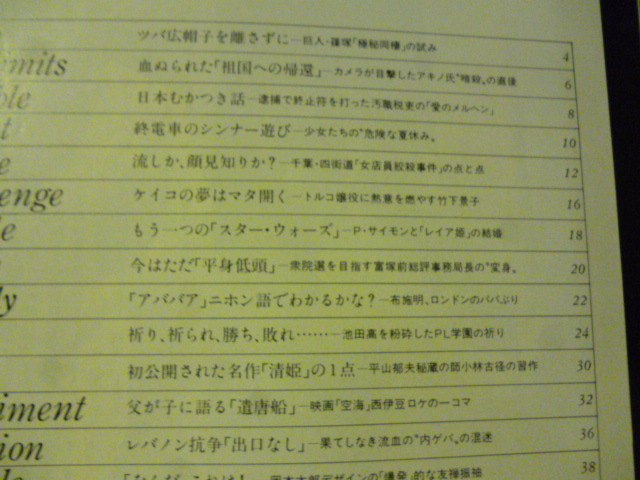 ツバ広帽子を離さずに—巨人・篠塚「極秘同棲」の試み 4
emits 血ぬられた「祖国への帰還」—カメラが目撃したアキノ氏"暗殺〟の直後 6
ble 日本むかつき話—逮捕で終止符を打った汚職税吏の「愛のメルヘン」 8
t 終電車のシンナー遊び—少女たちの"危険な夏休み〟 10
e 流しか、顔見知りか?—千葉・四街道「女店員絞殺事件」の点と点 12
enge ケイコの夢はマタ開く—トルコ嬢役に熱意を燃やす竹下景子 16
le もう一つの「スター・ウォーズ」—P・サイモンと「レイア姫」の結婚 18
今はただ「平身低頭」—衆院選を目指す富塚前総評事務局長の"変身〟 20
ly 「アババア」ニホン語でわかるかな?—布施明、ロンドンのパパぶり 22
祈り、祈られ、勝ち、敗れ……—池田高を粉砕したPL学園の祈り 24
初公開された名作「清姫」の1点—平山郁夫秘蔵の師小林古径の習作 30
iment 父が子に語る「遣唐船」—映画「空海」西伊豆ロケの一コマ 32
ion レバノン抗争「出口なし」—果てしなき流血の"内ゲバ〟の混迷 36
「なんだ、これは!—岡本太郎デザインの「爆発」的な友禅振袖 38